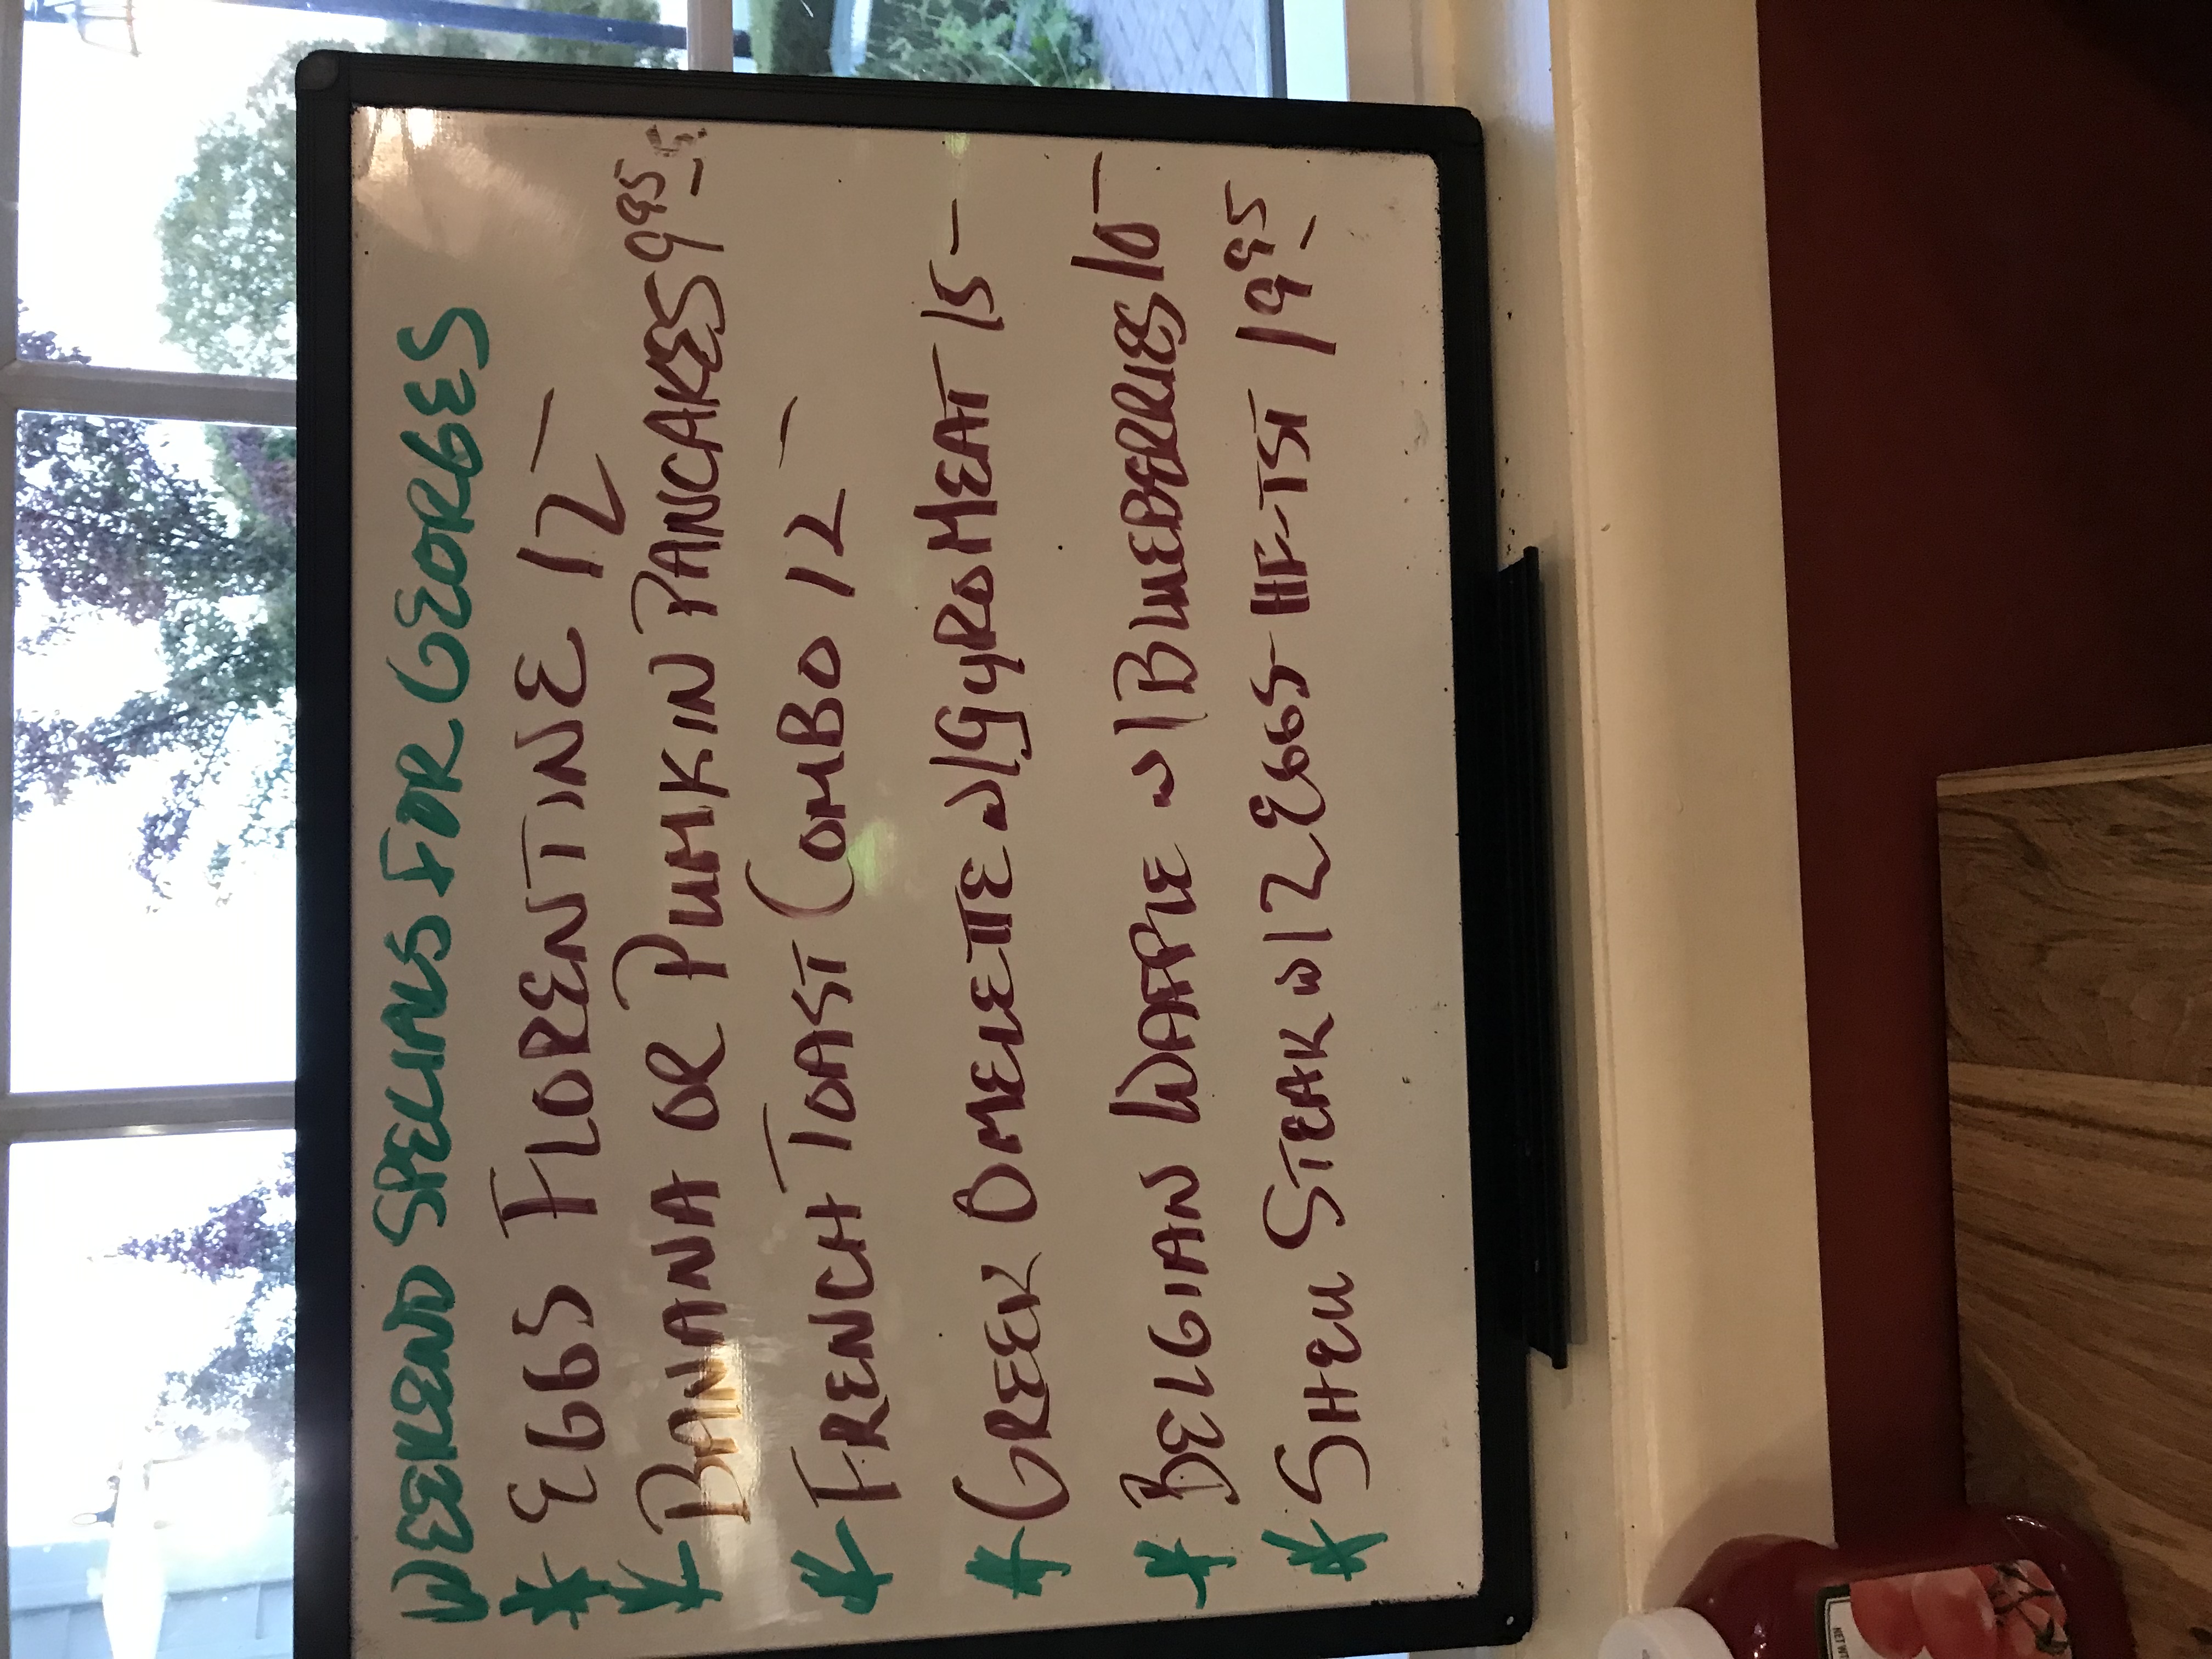 WEEKEND SPECIALS FOR GEORGES
* EGGS FLORENTINE 12-
* BANANA OR PUMKIN PANCAKES 9 95
* FRENCH TOAST COMBO 12 -
* GREEK OMELETTE W/GYRO MEAT 15 -
* BELGIAN WAFFLE W/BLUEBERRIES 10-
* SHELL STEAK W/2 EGGS-HF-TST 19 95
NET WT